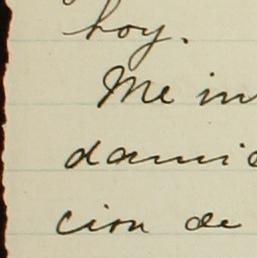 hoy.
Me in
damid
cion de